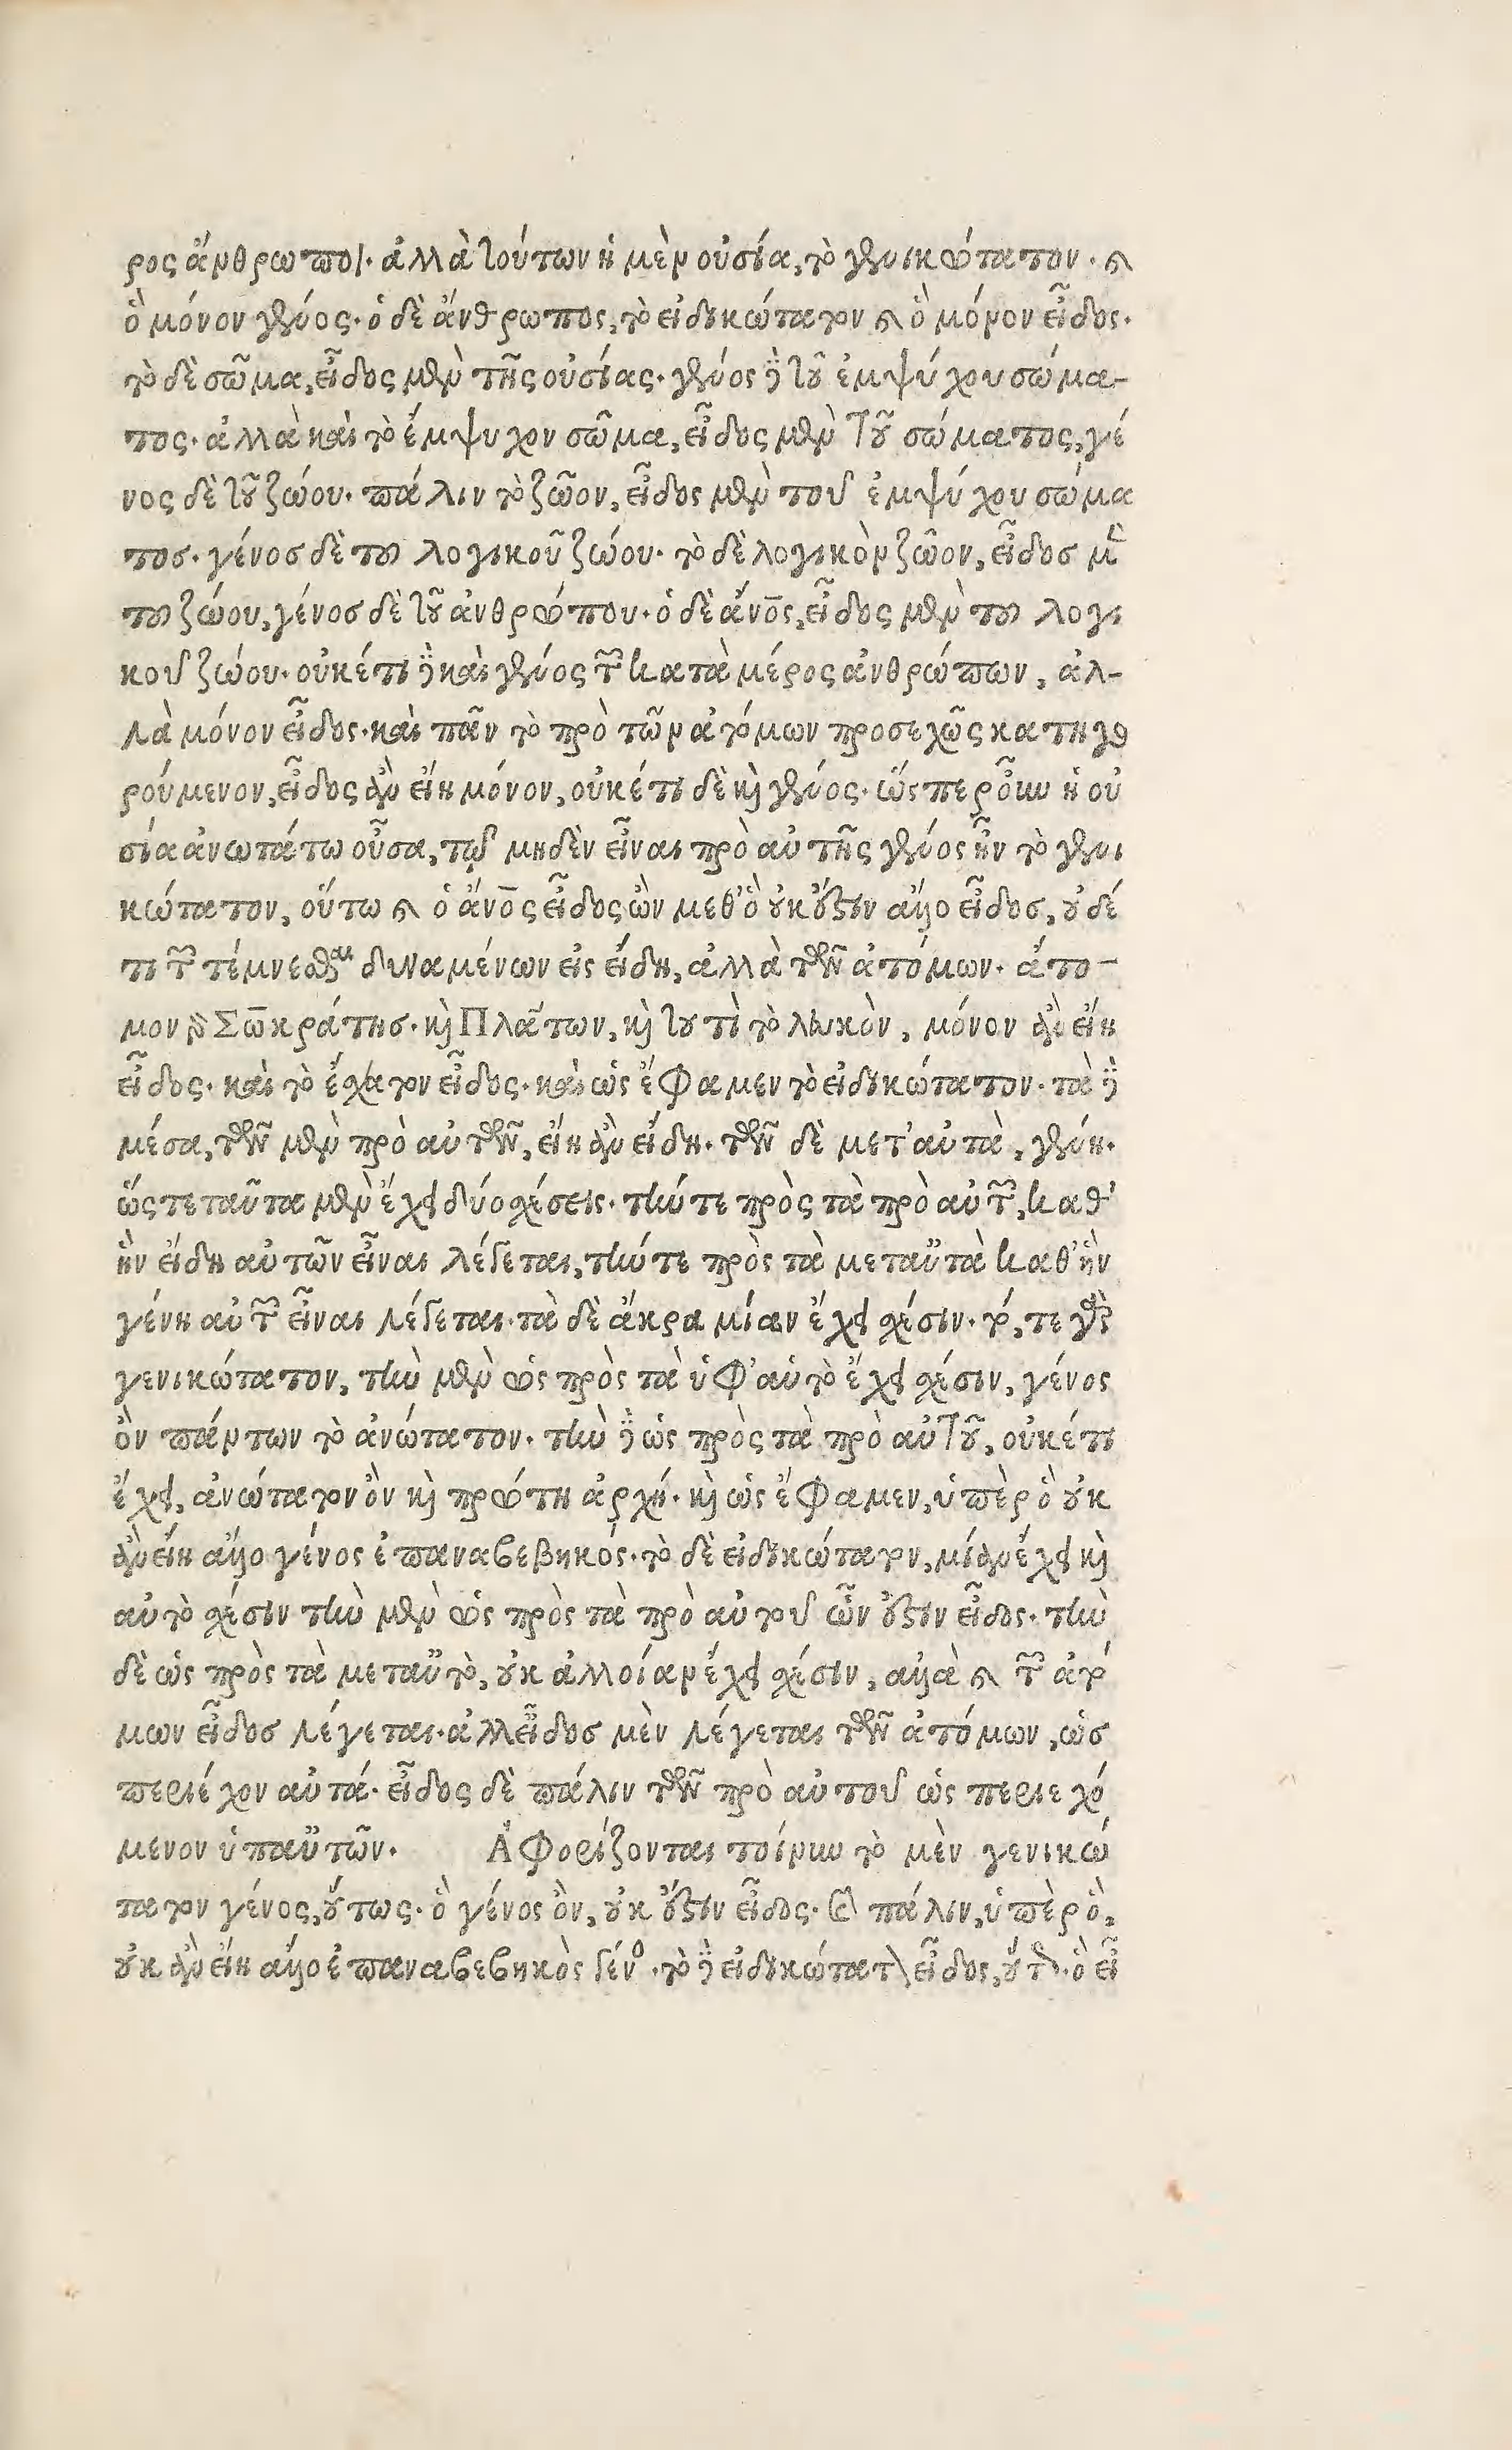 ρος ἄνθρωποι. ἀλλὰ τούτων ἡ μὲν οὐσία, τὸ γενικώτατον. καὶ
ὃ μόνον γένος. ὁ δὲ ἄνθρωπος, τὸ εἰδικώτατον καὶ ὃ μόνον εἶδος.
τὸ δὲ σῶμα, εἶδος μὲν τῆς οὐσίας. γένος δὲ τοῦ ἐμψύχου σώμα-
τος. ἀλλὰ καὶ τὸ ἔμψυχον σῶμα, εἶδος μὲν τοῦ σώματος, γέ
νος δὲ τοῦ ζώου. πάλιν τὸ ζῶον, εἶδος μὲν τοῦ ἐμψύχου σώμα
τοσ. γένοσ δὲ του λογικοῦ ζώου. τὸ δὲ λογικὸν ζῶον, εἶδοσ μὲν
του ζώου, γένοσ δὲ τοῦ ἀνθρώπου. ὁ δὲ ἄνο̅ς, εἶδος μὲν του λογι
κοῦ ζώου. οὐκέτι δὲ καὶ γένος τῶν κατὰ μέρος ἀνθρώπων, ἀλ-
λὰ μόνον εἶδος. καὶ πᾶν τὸ πρὸ τῶν ἀτόμων προσεχῶς κατηγο
ρούμενον, εἶδος ἂν εἴη μόνον, οὐκέτι δὲ καὶ γένος. ὥσπερ οὖν ἡ οὐ
σία ἀνωτάτω οὖσα, τῷ μηδὲν εἶναι πρὸ αὐτῆς γένος ἦν τὸ γενι
κώτατον, οὕτω καὶ ὁ ἄνο̅ς εἶδος ὢν μεθ' ὃ οὐκ ἔστιν ἄλλο εἶδοσ, οὐδέ
τι τῶν τέμνεσθαι δυναμένων εἰς εἴδη, ἀλλὰ τῶν ἀτόμων. ἄτο-
μον γὰρ Σωκράτησ. καὶ Πλάτων, καὶ τουτὶ τὸ λευκὸν, μόνον ἂν εἴη
εἶδος. καὶ τὸ ἔσχατον εἶδος. καὶ ὡς ἔφαμεν τὸ εἰδικώτατον. τὰ δὲ
μέσα, τῶν μὲν πρὸ αὐτῶν, εἴη ἂν εἴδη. τῶν δὲ μετ' αὐτὰ, γένη.
ὥστε ταῦτα μὲν ἔχει δύο σχέσεις. τήν τε πρὸς τὰ πρὸ αὐτῶν, καθ'
ἣν εἴδη αὐτῶν εἶναι λέγεται, τήν τε πρὸς τὰ μετ' αὐτὰ καθ' ἣν
γένη αὐτῶν εἶναι λέγεται. τὰ δὲ ἄκρα μίαν ἔχει σχέσιν. τό, τε γὰρ
γενικώτατον, τὴν μὲν ὡς πρὸς τὰ ὑφ' αὑτὸ ἔχει σχέσιν, γένος
ὂν πάντων τὸ ἀνώτατον. τὴν δὲ ὡς πρὸς τὰ πρὸ αὐτοῦ, οὐκέτι
ἔχει, ἀνώτατον ὂν καὶ πρώτη ἀρχή. καὶ ὡς ἔφαμεν, ὑπὲρ ὃ οὐκ
ἂν εἴη ἄλλο γένος ἐπαναβεβηκός. τὸ δὲ εἰδικώτατον, μίαν ἔχει καὶ
αὐτὸ σχέσιν τὴν μὲν ὡς πρὸς τὰ πρὸ αὐτοῦ ὧν ἔστιν εἶδος. τὴν
δὲ ὡς πρὸς τὰ μετ' αὐτὸ, οὐκ ἀλλοίαν ἔχει σχέσιν, ἀλλὰ καὶ τῶν ἀτό
μων εἶδοσ λέγεται. ἀλλ' εἶδοσ μὲν λέγεται τῶν ἀτόμων, ὡσ
περιέχον αὐτά. εἶδος δὲ πάλιν τῶν πρὸ αὐτοῦ ὡς περιεχό
μενον ὑπ' αὐτῶν. Ἀφορίζονται τοίνυν τὸ μὲν γενικώ
τατον γένος, οὕτως. ὃ γένος ὂν, οὐκ ἔστιν εἶδος. καὶ πάλιν, ὑπὲρ ὃ,
οὐκ ἂν εἴη ἄλλο ἐπαναβεβηκὸς γένος. τὸ δὲ εἰδικώτατον εἶδος, οὕτως. ὃ εἶ